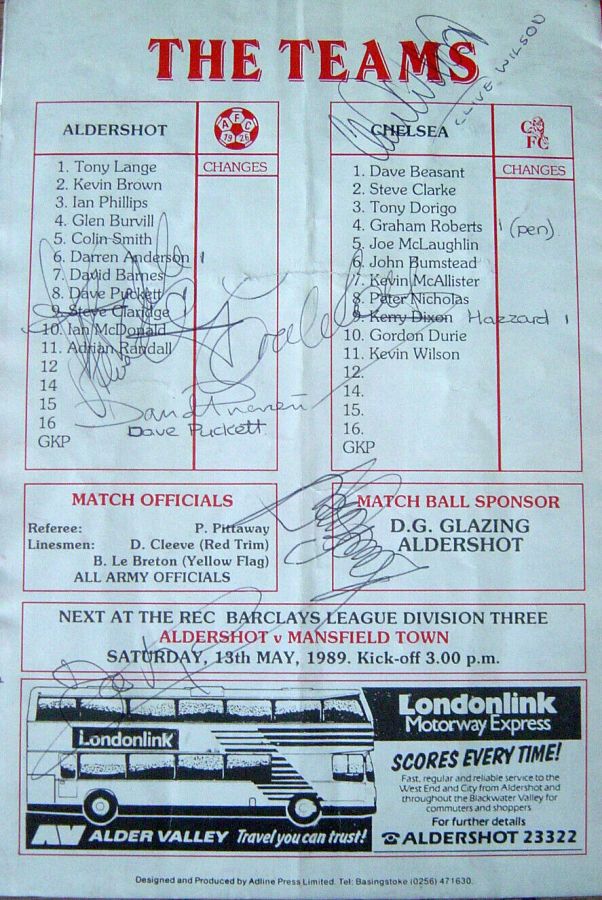 THE TEAMS
CLIVE WILSON
ALDERSHOT
A F C
19 26
CHANGES
1. Tony Lange
2. Kevin Brown
3. Ian Phillips
4. Glen Burvill
5. Colin Smith
6. Darren Anderson 1
7. David Barnes
8. Dave Puckett 1
9. Steve Claridge
10. Ian McDonald
11. Adrian Randall
12
14
15
16
GKP
Dave Puckett
CHELSEA
C
FC
CHANGES
1. Dave Beasant
2. Steve Clarke
3. Tony Dorigo
4. Graham Roberts 1 (pen)
5. Joe McLaughlin
6. John Bumstead
7. Kevin McAllister
8. Peter Nicholas
9. Kerry Dixon Hazzard 1
10. Gordon Durie
11. Kevin Wilson
12.
14.
15.
16.
GKP
MATCH OFFICIALS
Referee: P. Pittaway
Linesmen: D. Cleeve (Red Trim)
B. Le Breton (Yellow Flag)
ALL ARMY OFFICIALS
MATCH BALL SPONSOR
D.G. GLAZING
ALDERSHOT
NEXT AT THE REC BARCLAYS LEAGUE DIVISION THREE
ALDERSHOT v MANSFIELD TOWN
SATURDAY, 13th MAY, 1989. Kick-off 3.00 p.m.
Londonlink
AV ALDER VALLEY Travel you can trust!
Londonlink
Motorway Express
SCORES EVERY TIME!
Fast, regular and reliable service to the
West End and City from Aldershot and
throughout the Blackwater Valley for
commuters and shoppers
For further details
☎ALDERSHOT 23322
Designed and Produced by Adline Press Limited. Tel: Basingstoke (0256) 471630.